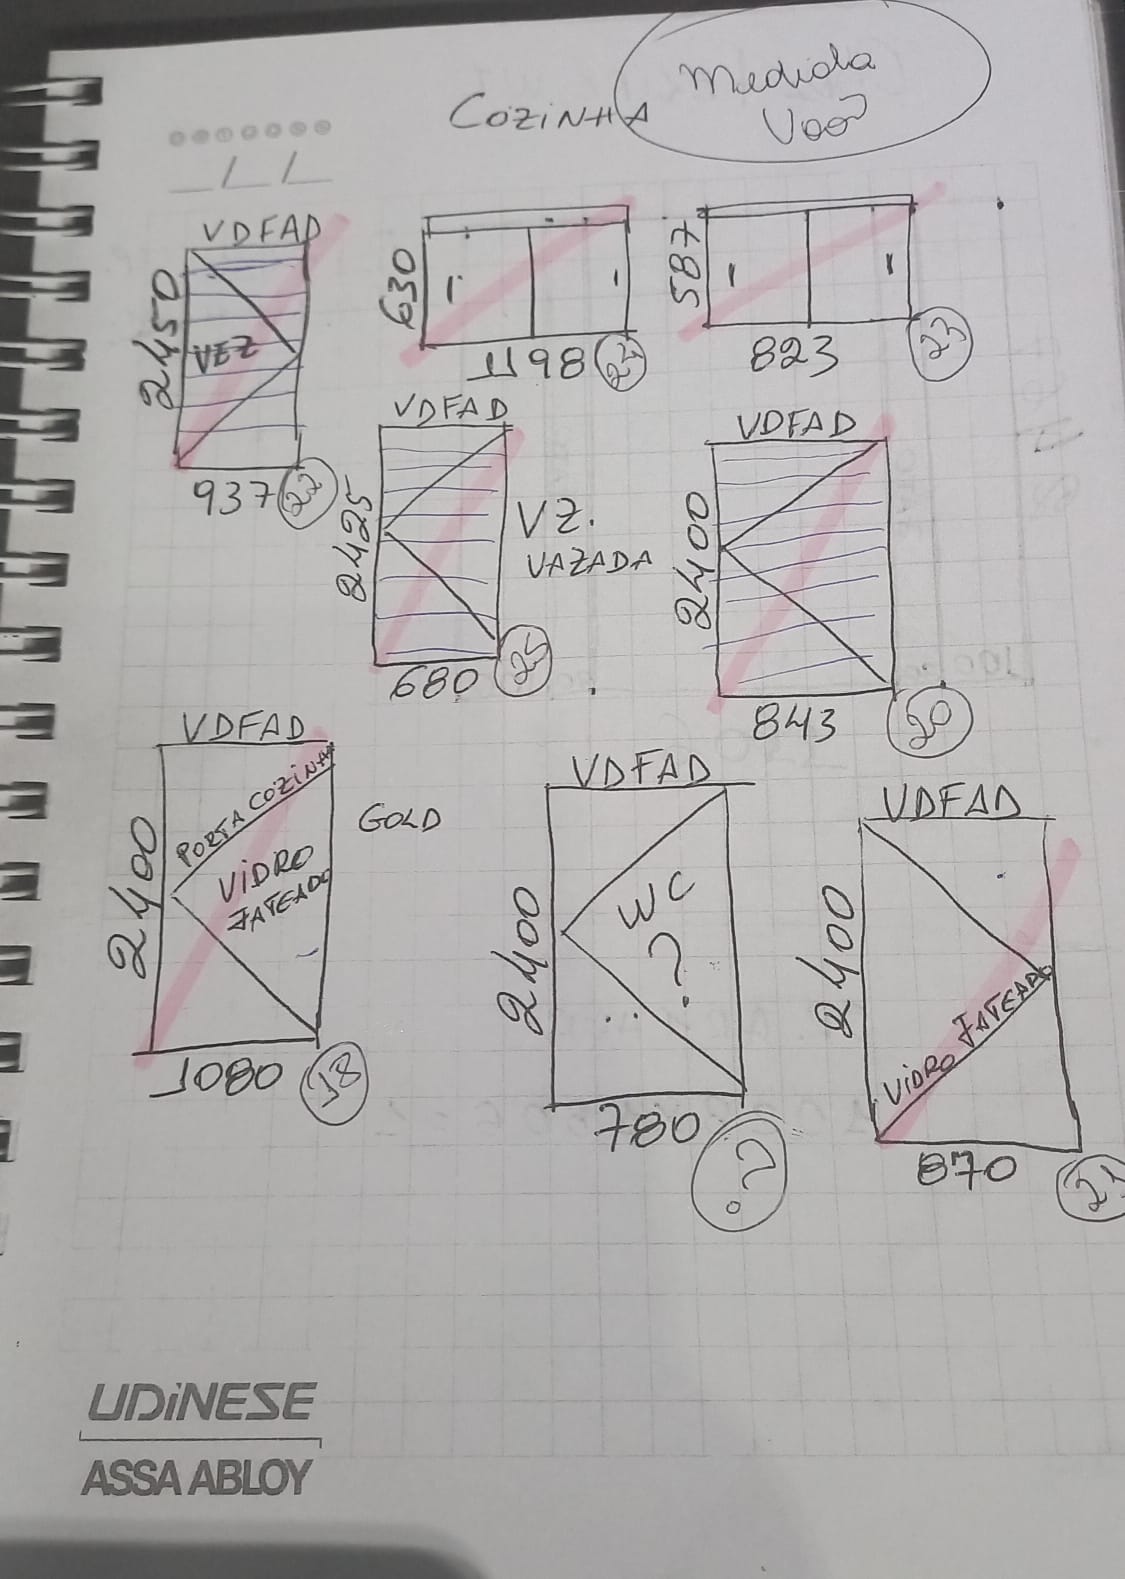 COZINHA
Medida
Vão
_/_/_
VDFAD
2450
VEZ
937
22
630
1198
587
823
23
VDFAD
2425
VZ.
VAZADA
680
25
VDFAD
2400
843
20
VDFAD
2400
PORTA COZINHA
VIDRO
JATEADO
GOLD
1080
18
VDFAD
2400
WC
?
780
?
VDFAD
2400
VIDRO JATEADO
870
UDINESE
ASSA ABLOY